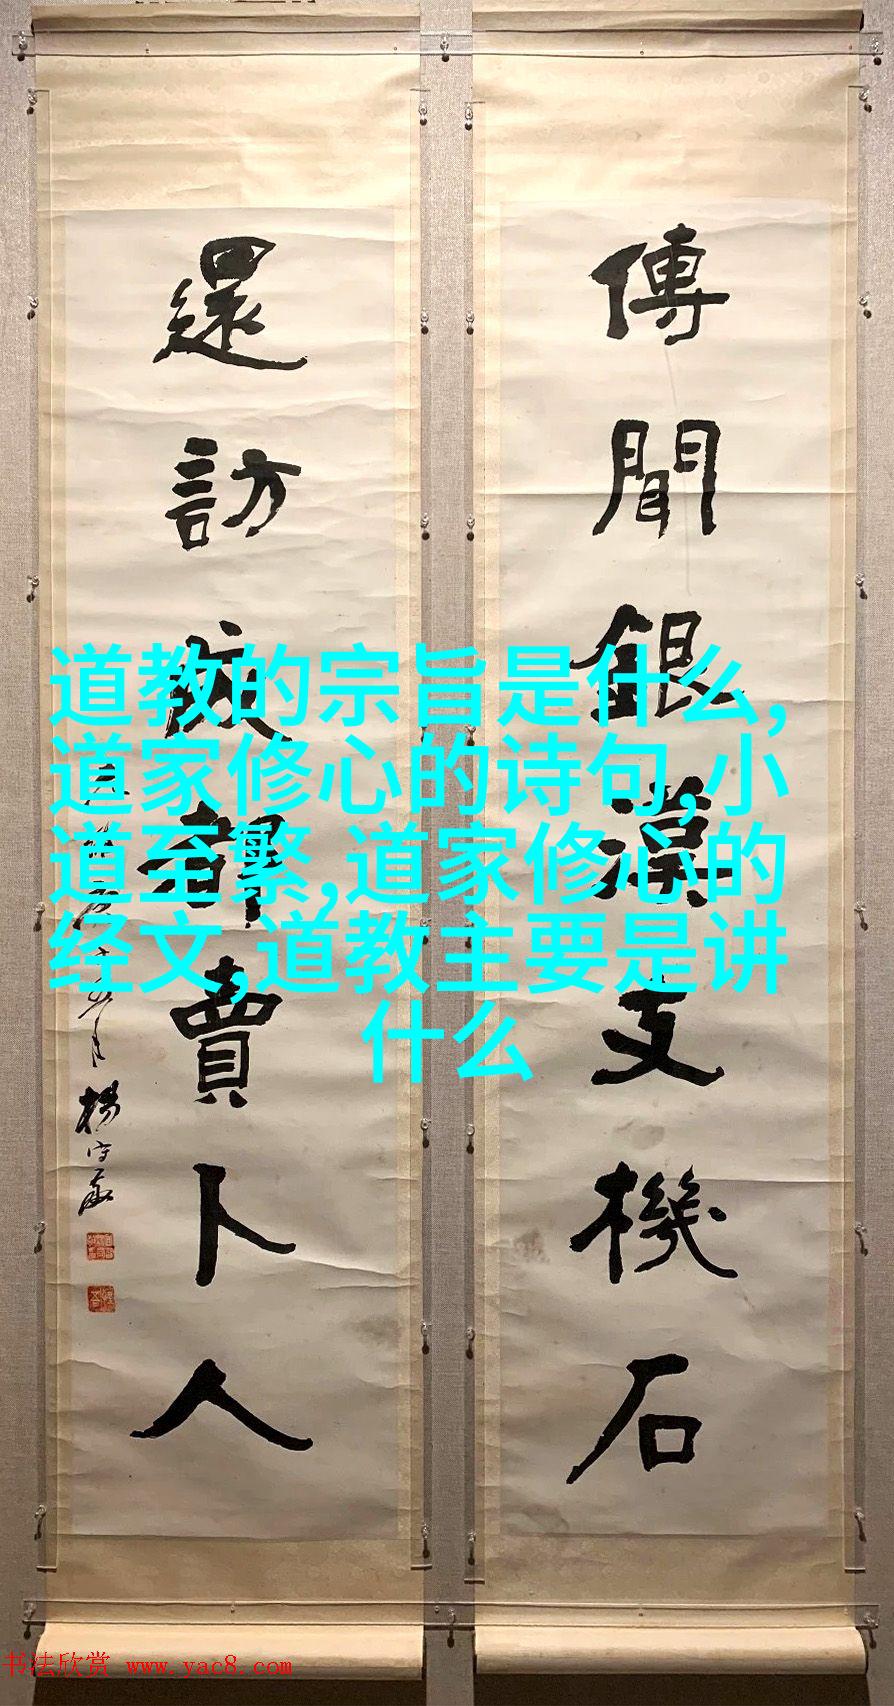 傳聞銀漢支機石
還訪都賣卜人
楊守敬
道教的宗旨是什么,
道家修心的诗句,小
道至繁,道家修心的
经文,道教主要是讲
什么
书法欣赏 www.yac8.com